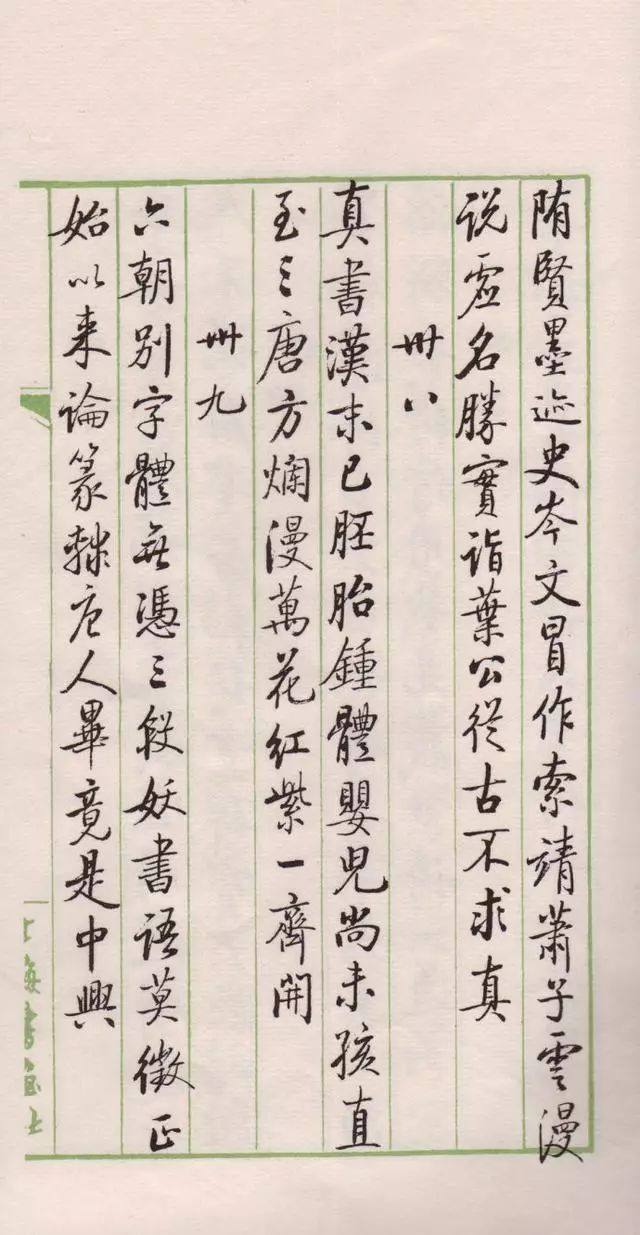 隋賢墨迹史岑文冒作索靖蕭子雲漫
说虚名勝實詣葉公從古不求真
卅八
真書漢末已胚胎鍾體嬰兒尚未孩直
至三唐方爛漫萬花紅紫一齊開
卅九
六朝别字體無憑三段妖書語莫徵正
始以来論篆隸唐人畢竟是中興